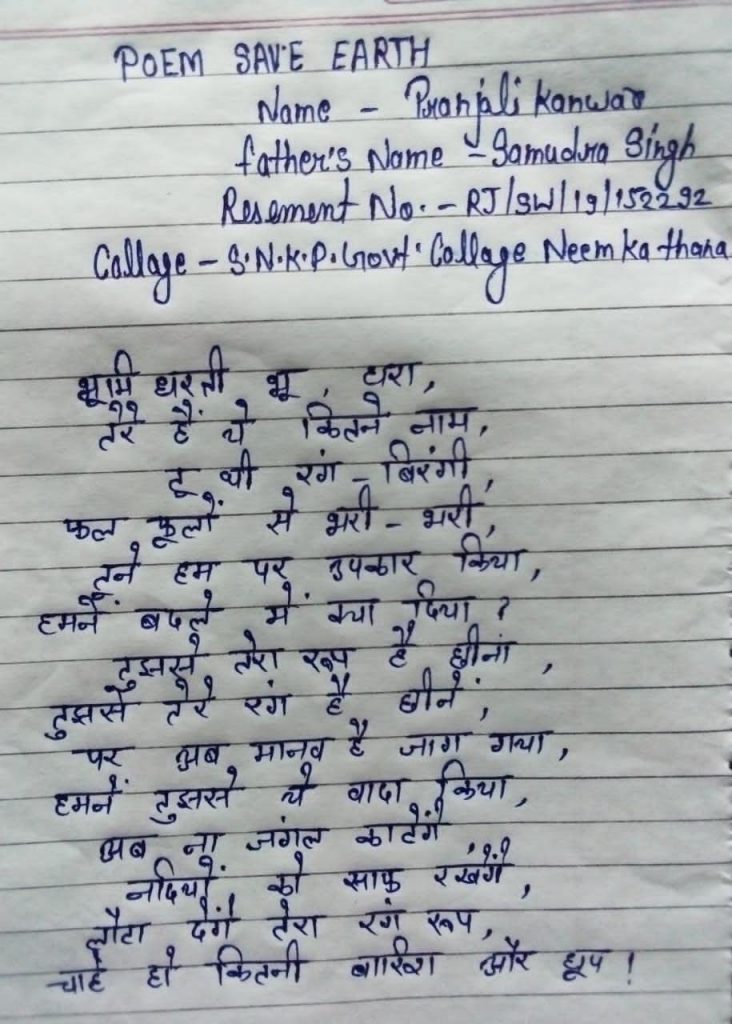 POEM SAVE EARTH
Name - Pranjali Kanwar
father's Name - Samudra Singh
Resement No. - RJ/SW/19/152292
Collage - S.N.K.P. Govt. Collage Neem ka thana
भूमि धरती भू , धरा,
तेरे हैं ये कितने नाम,
तू थी रंग - बिरंगी,
फल फूलों से भरी - भरी,
तूने हम पर उपकार किया,
हमनें बदले में क्या दिया ?
तुझसे तेरा रूप है छीना ,
तुझसे तेरे रंग है छीने,
पर अब मानव है जाग गया,
हमनें तुझसे ये वादा किया,
अब ना जंगल काटेंगे ,
नदियों को साफ रखेंगे,
लौटा देंगे तेरा रंग रूप,
चाहे हो कितनी बारिश और धूप !